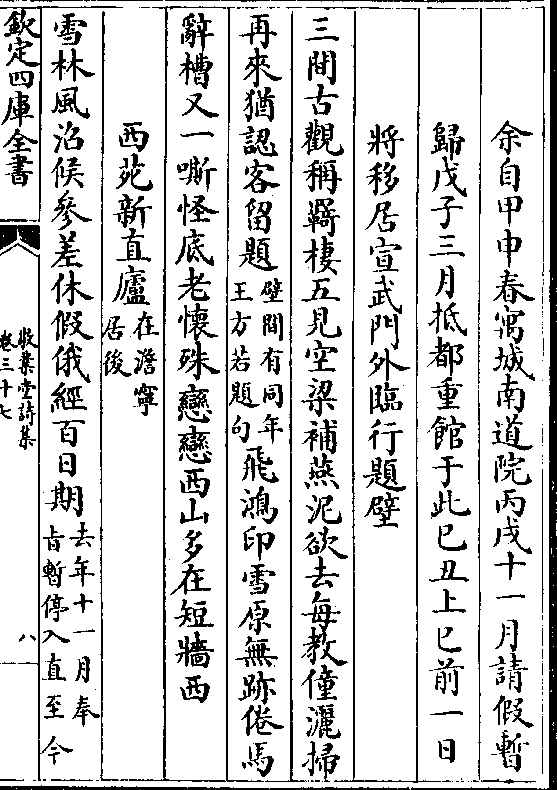 余自甲申春寓城南道院丙戌十一月請假暫
歸戊子三月抵都重館于此已丑上巳前一日
將移居宣武門外臨行題壁
三間古觀稱羇棲五見空梁補燕泥欲去每教僮灑掃
再來猶認客留題壁間有同年王方若題句飛鴻印雪原無跡倦馬
辭槽又一嘶怪底老懷殊戀戀西山多在短牆西
西苑新直廬在澹寧居後
雪林風沼候參差休假俄經百日期去年十一月奉旨暫停入直至今
欽定四庫全書
敬業堂詩集
卷三十七
八